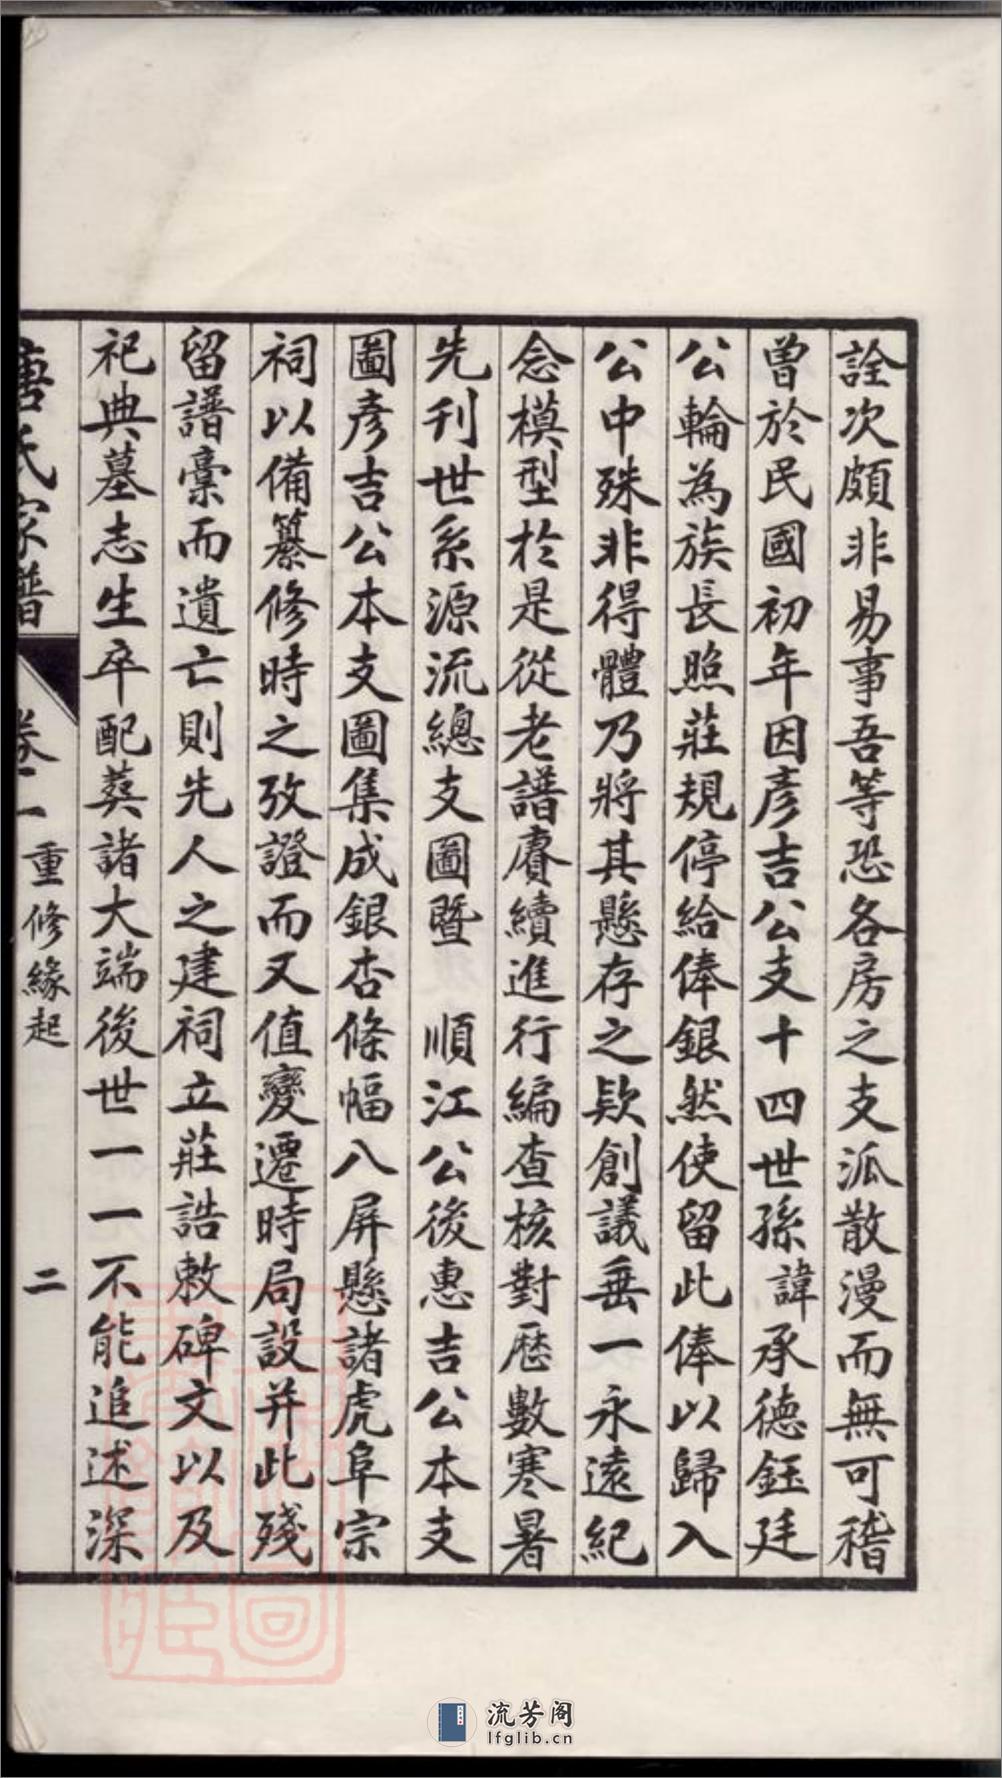 詮次頗非易事吾等恐各房之支派散漫而無可稽
曾於民國初年因彥吉公支十四世孫諱承德鈺廷
公輪為族長照莊規停給俸銀然使留此俸以歸入
公中殊非得體乃將其懸存之欵創議垂一永遠紀
念模型於是從老譜賡續進行編查核對歷數寒暑
先刊世系源流總支圖暨 順江公後惠吉公本支
圖彥吉公本支圖集成銀杏條幅八屏懸諸虎阜宗
祠以備纂修時之攷證而又值變遷時局設并此殘
留譜稾而遺亡則先人之建祠立莊誥敕碑文以及
祀典墓志生卒配葬諸大端後世一一不能追述深
唐氏家譜 卷一 重修緣起 二
流芳阁
lfglib.cn